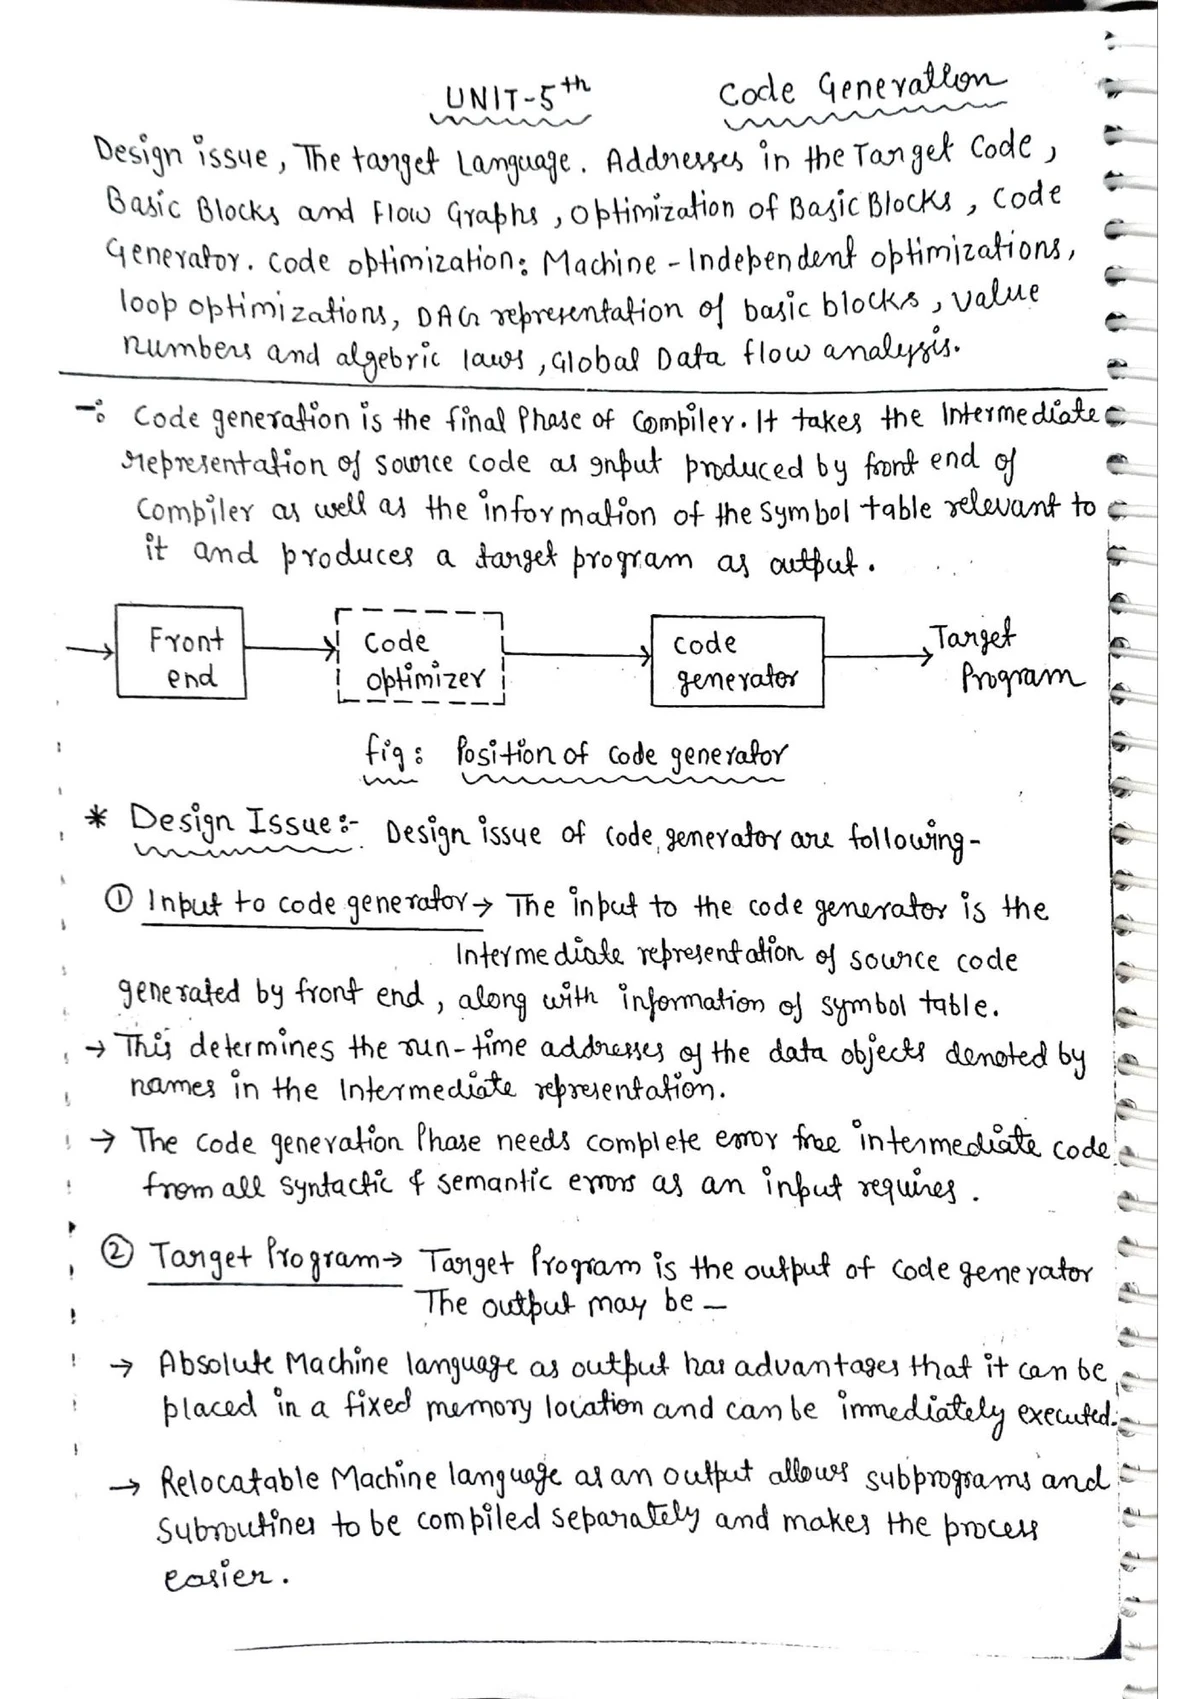 UNIT-5th Code Generation
Design issue, The target Language. Addresses in the Target Code,
Basic Blocks and Flow Graphs, optimization of Basic Blocks, Code
Generator. Code optimization: Machine-Independent optimizations,
loop optimizations, DAG representation of basic blocks, value
numbers and algebric laws, Global Data flow analysis.
-: Code generation is the final Phase of Compiler. It takes the Intermediate
representation of source code as input produced by front end of
Compiler as well as the information of the symbol table relevant to
it and produces a target program as output.
Front
end
Code
optimizer
code
generator
Target
Program
fig: Position of code generator
* Design Issue:- Design issue of code generator are following-
① Input to code generator→ The input to the code generator is the
Intermediate representation of source code
generated by front end, along with information of symbol table.
→ This determines the run-time addresses of the data objects denoted by
names in the Intermediate representation.
→ The code generation Phase needs complete error free intermediate code
from all syntactic & semantic errors as an input requires.
② Target Program→ Target Program is the output of code generator
The output may be —
→ Absolute Machine language as output has advantages that it can be
placed in a fixed memory location and can be immediately executed.
→ Relocatable Machine language as an output allows subprograms and
Subroutines to be compiled separately and makes the process
easier.